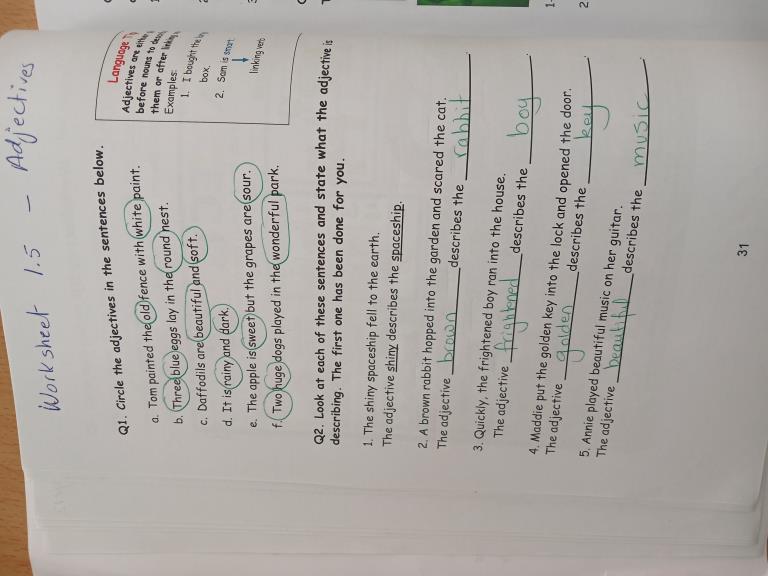 Worksheet 1.5 – Adjectives
Language
Adjectives are either
before nouns to
them or after linking
Examples:
1. I bought the
box.
2. Sam is smart.
linking verb
Q1. Circle the adjectives in the sentences below.
a. Tom painted the old fence with white paint.
b. Three blue eggs lay in the round nest.
c. Daffodils are beautiful and soft.
d. It is rainy and dark.
e. The apple is sweet but the grapes are sour.
f. Two huge dogs played in the wonderful park.
Q2. Look at each of these sentences and state what the adjective is
describing. The first one has been done for you.
1. The shiny spaceship fell to the earth.
The adjective shiny describes the spaceship.
2. A brown rabbit hopped into the garden and scared the cat.
The adjective brown describes the rabbit.
3. Quickly, the frightened boy ran into the house.
The adjective frightened describes the boy.
4. Maddie put the golden key into the lock and opened the door.
The adjective golden describes the key.
5. Annie played beautiful music on her guitar.
The adjective beautiful describes the music.
31